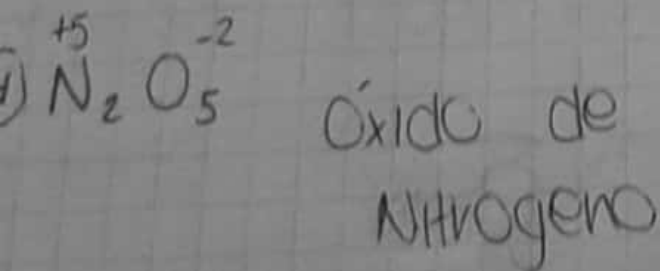 +5 -2
1) N₂ O₅ Óxido de
Nitrogeno